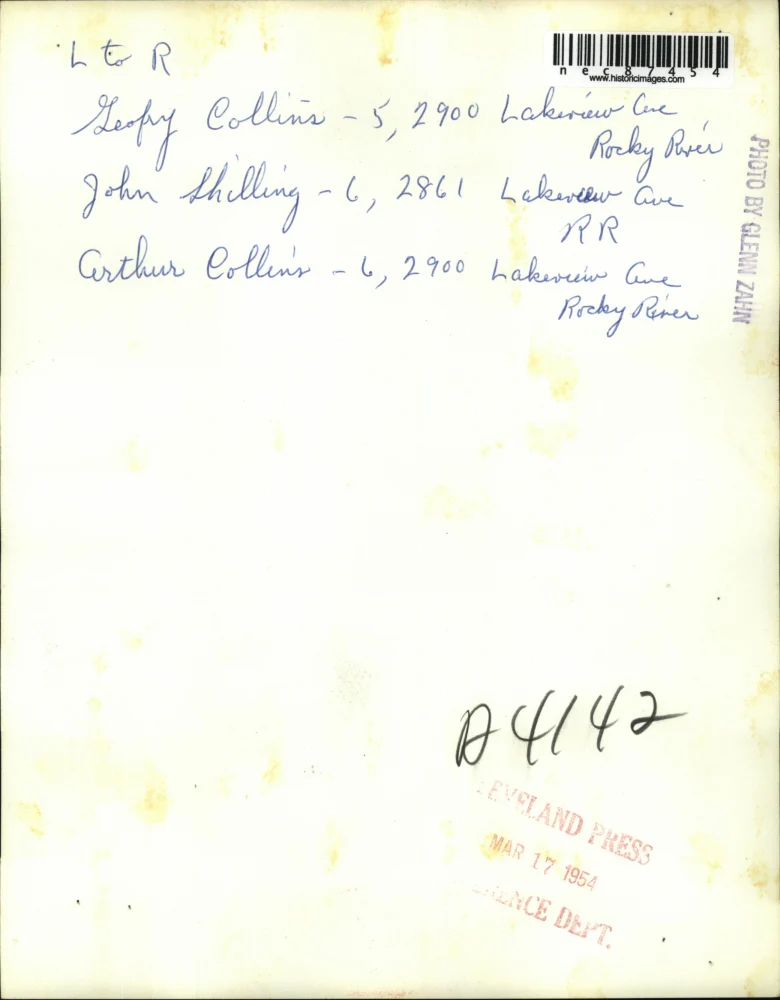 L to R
nec87454
www.historicimages.com
Geofry Collins - 5, 2900 Lakeview Ave,
Rocky River
John Shilling - 6, 2861 Lakeview Ave
RR
Arthur Collins - 6, 2900 Lakeview Ave
Rocky River
PHOTO BY GLENN ZAHN
A4142
CLEVELAND PRESS
MAR 17 1954
DEPT.